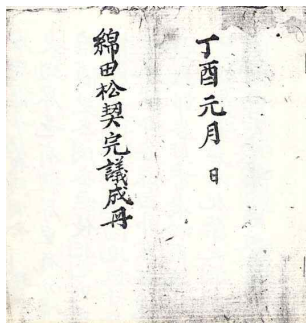 丁酉元月 日
綿田松契完議成冊